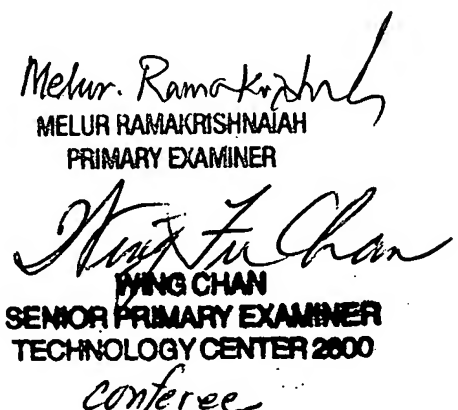 Melur. Ramakrishnaiah
MELUR RAMAKRISHNAIAH
PRIMARY EXAMINER
Wing Fu Chan
WING CHAN
SENIOR PRIMARY EXAMINER
TECHNOLOGY CENTER 2600
conferee